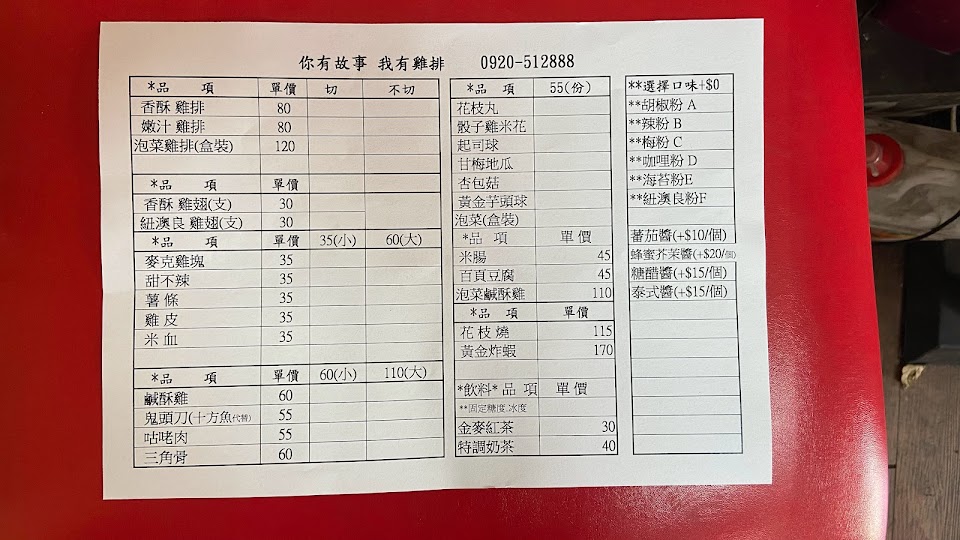 你有故事 我有雞排 0920-512888
*品 項 單價 切 不切
香酥 雞排 80
嫩汁 雞排 80
泡菜雞排(盒裝) 120
*品 項 單價
香酥 雞翅(支) 30
紐澳良 雞翅(支) 30
*品 項 單價 35(小) 60(大)
麥克雞塊 35
甜不辣 35
薯 條 35
雞 皮 35
米 血 35
*品 項 單價 60(小) 110(大)
鹹酥雞 60
鬼頭刀(十方魚代替) 55
咕咾肉 55
三角骨 60
*品 項 55(份)
花枝丸
骰子雞米花
起司球
甘梅地瓜
杏包菇
黃金芋頭球
泡菜(盒裝)
*品 項 單價
米腸 45
百頁豆腐 45
泡菜鹹酥雞 110
*品 項 單價
花 枝 燒 115
黃金炸蝦 170
*飲料*品 項 單價
**固定糖度.冰度
金麥紅茶 30
特調奶茶 40
**選擇口味+$0
**胡椒粉 A
**辣粉 B
**梅粉 C
**咖哩粉 D
**海苔粉E
**紐澳良粉F
蕃茄醬(+$10/個)
蜂蜜芥茉醬(+$20/個)
糖醋醬(+$15/個)
泰式醬(+$15/個)